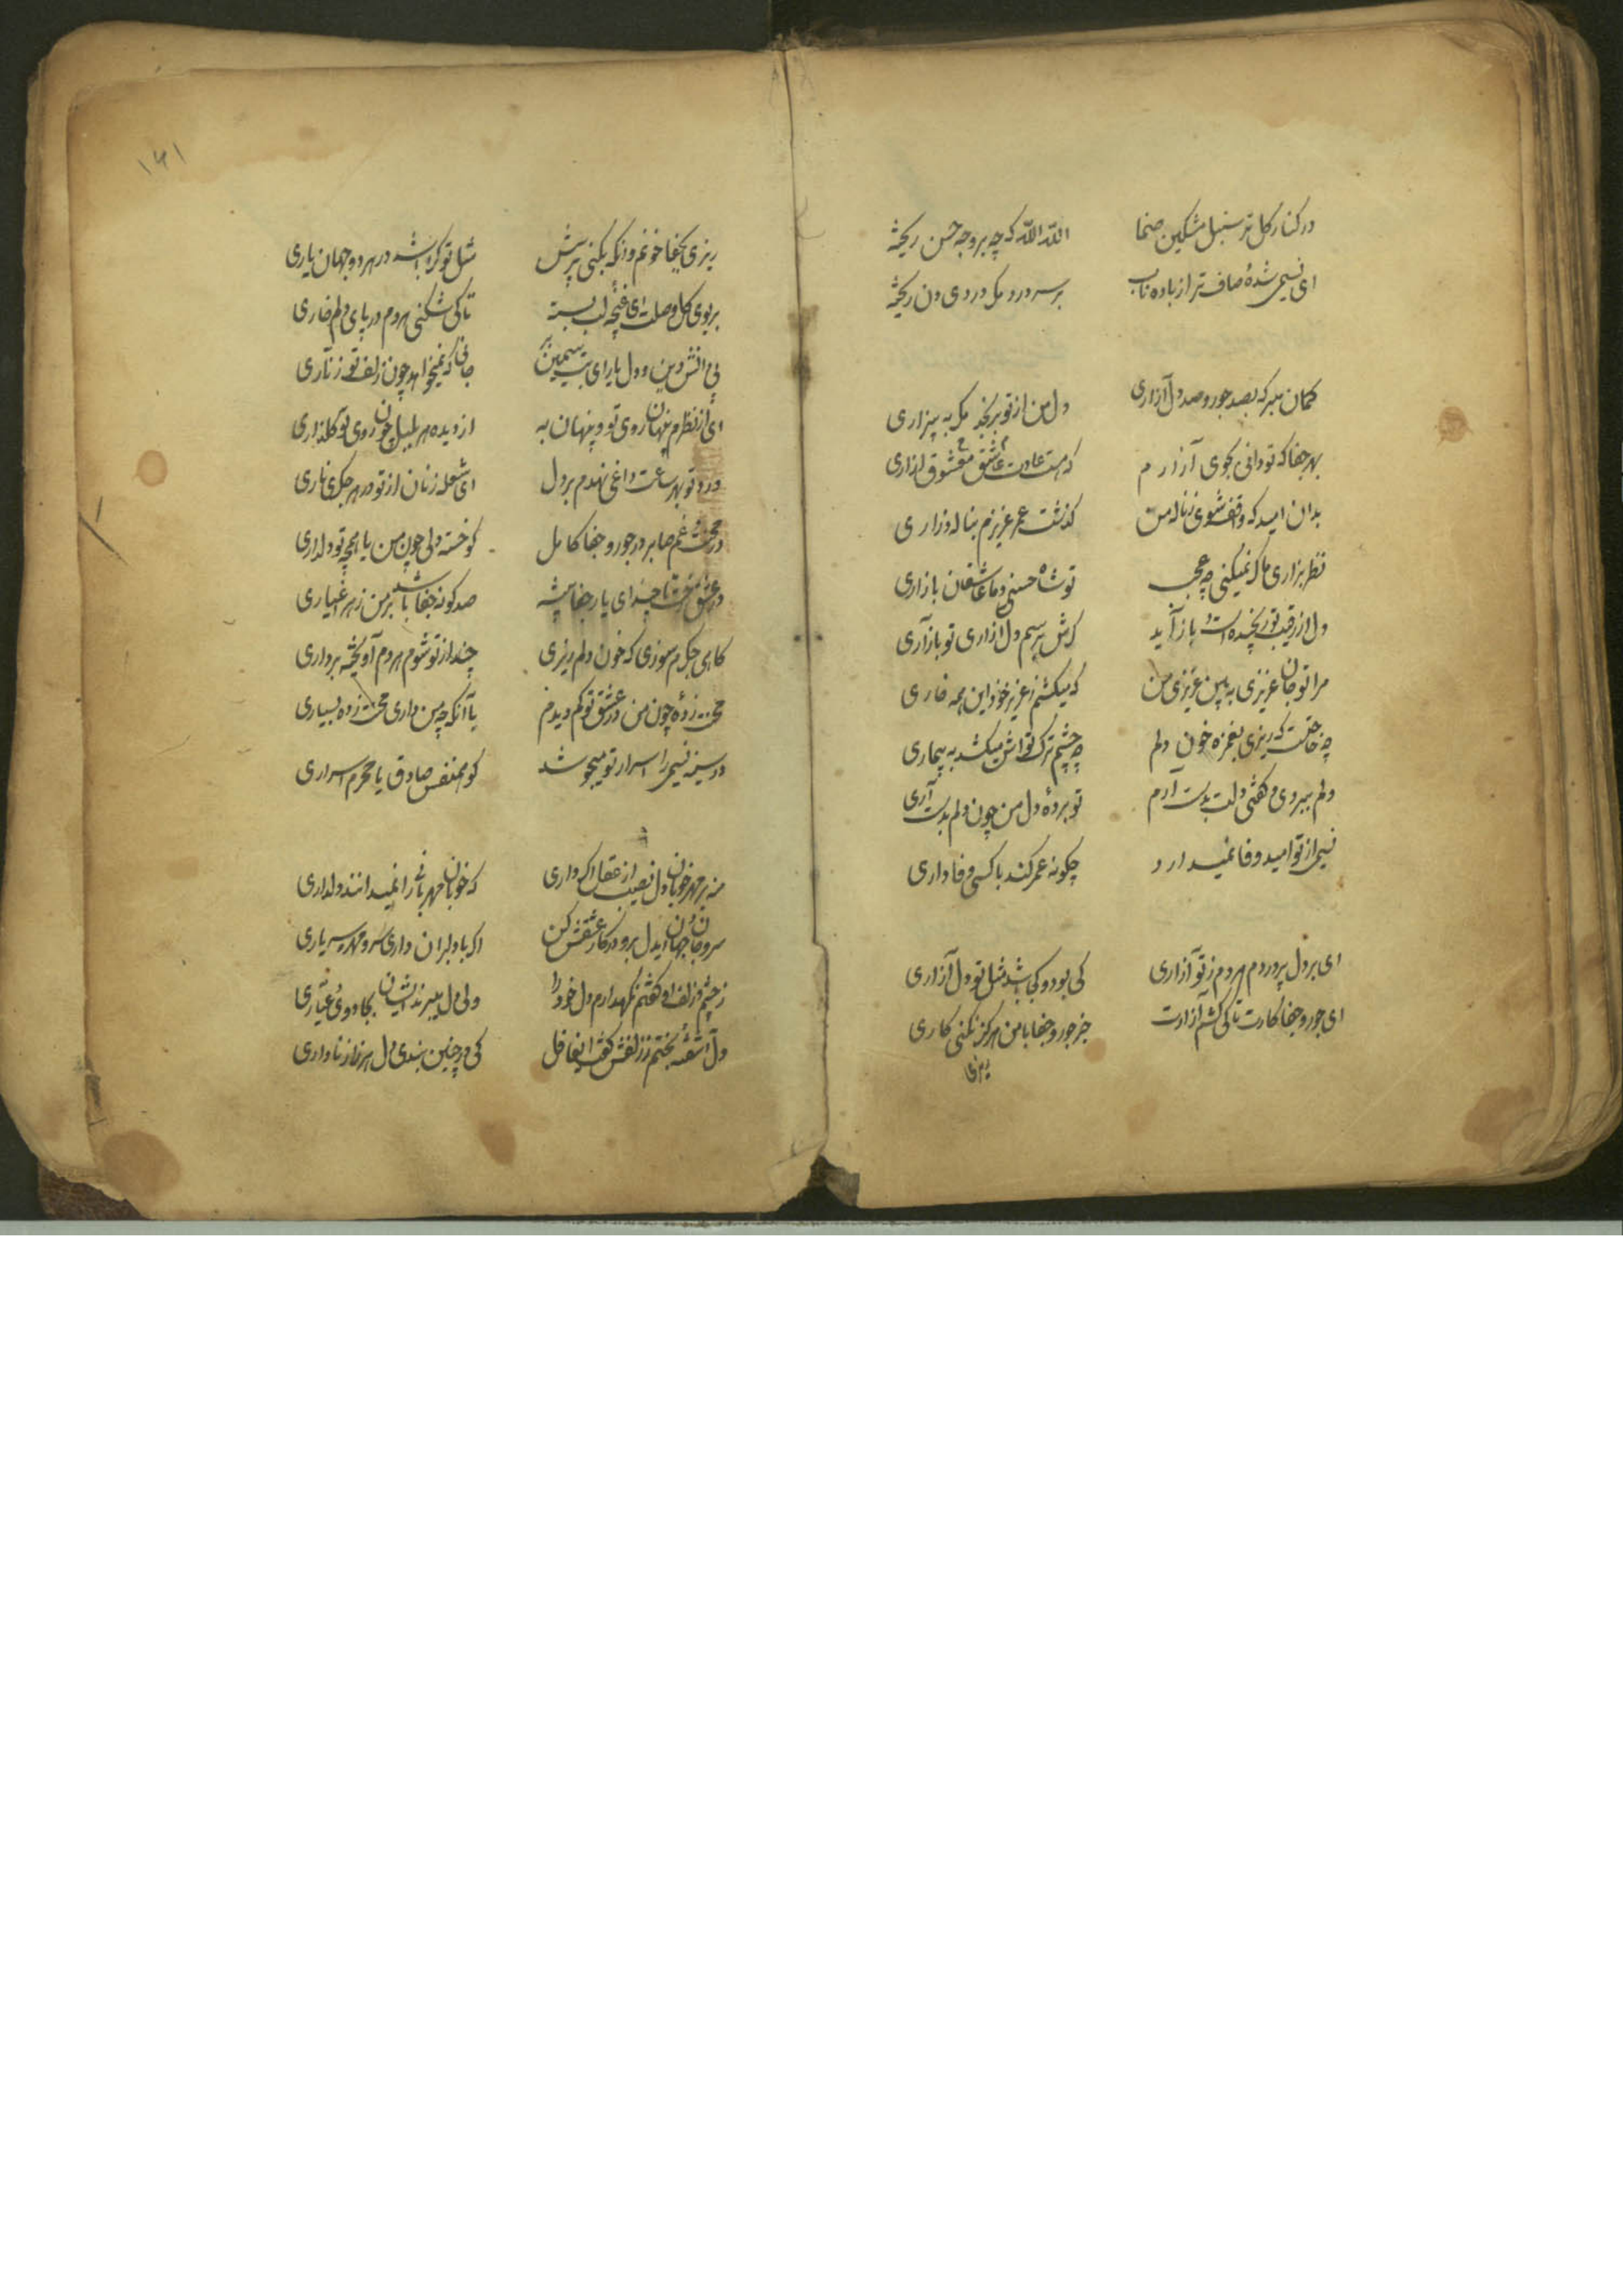 در کنار گل تر سنبل مشکین صنما الله الله که چه بر وجه حسن ریخته
ای نسیمی شدهٔ صاف‌تر از باده ناب بر سر درد مگر دردی دن ریخته
گمان مبر که بصد جور و صد دل آزاری دل من از تو برنجد مگر به بیزاری
بهر جفا که تو دانی بجوی آزارم که هست عادت عاشق معشوق آزاری
بدان امید که واقف شوی ز ناله من گذشت عمر عزیزم بناله و زاری
نظر بزاری ما گر نمیکنی چه عجب تو شاه حسنی و ما عاشقان بازاری
دل از رقیب تو رنجیده است و باز آید گرش برسم دل آزاری تو باز آری
مرا تو جان عزیزی به بین عزیزی من که میکشم ز عزیز خود این همه خواری
چه حاجتست که ریزی بغمزه خون دلم چو چشم ترک تواش میکشد به بیماری
دلم ببردی و گفتی دلت بدست آرم تو بردهٔ دل من چون دلم بدست آری
نسیمی از تو امید وفا نمیدارد چگونه عمر کند با کسی وفاداری
ای بر دل پر دردم هر دم ز تو آزاری کی بود و کی باشد مثل تو دل آزاری
ای جور و جفا کارت تا کی کشم آزارت جز جور و جفا با من هرگز نکنی کاری
ریزی
۱۴۱
ریزی بجفا خونم وانگه نکنی پرسش مثل تو کرا باشد در هر دو جهان یاری
بر بوی گل وصلت ای غنچه لب بسته تا کی شکنی هر دم در پای دلم خاری
بی دانش و دین و دل یارای بت سیمین بر جانی که نمیخواهد چون زلف تو زناری
ای از نظرم پنهان روی تو و پنهان به از دیده هر بلبل چون روی تو گلزاری
درد تو بهر ساعت داغی نهدم بر دل ای شعله زنان از تو در هر جگری ناری
در محنت و غم صابر در جور و جفا کامل کو خسته دلی چون من یا همچو تو دلداری
در عشق رخت تا چند ای یار جفا پیشه صد گونه جفا باشد بر من ز هر اغیاری
گاهی جگرم سوزی گه خون دلم ریزی چند از تو شوم هر دم آویخته بر داری
محنت زدهٔ چون من در عشق تو کم دیدم با آنکه چو من داری محنت زده بسیاری
در سینه نسیمی را اسرار تو میجوشد کو همنفس صادق یا محرم اسراری
منه بر مهر خوبان دل نصیب از عقل اگر داری که خوبان مهربانی را نمیدانند و دلداری
سر و جان و جهان ایدل برو در کار عشقش کن اگر با دلبران داری سر و مهر و سر یاری
ز چشم و زلف او گفتم نگهدارم دل خود را ولی دل میبرند ایشان بجادویی و عیاری
دل آشفته بختم ز زلفش گفت ایغافل که در چنین بندی دل هرزه از نا داری